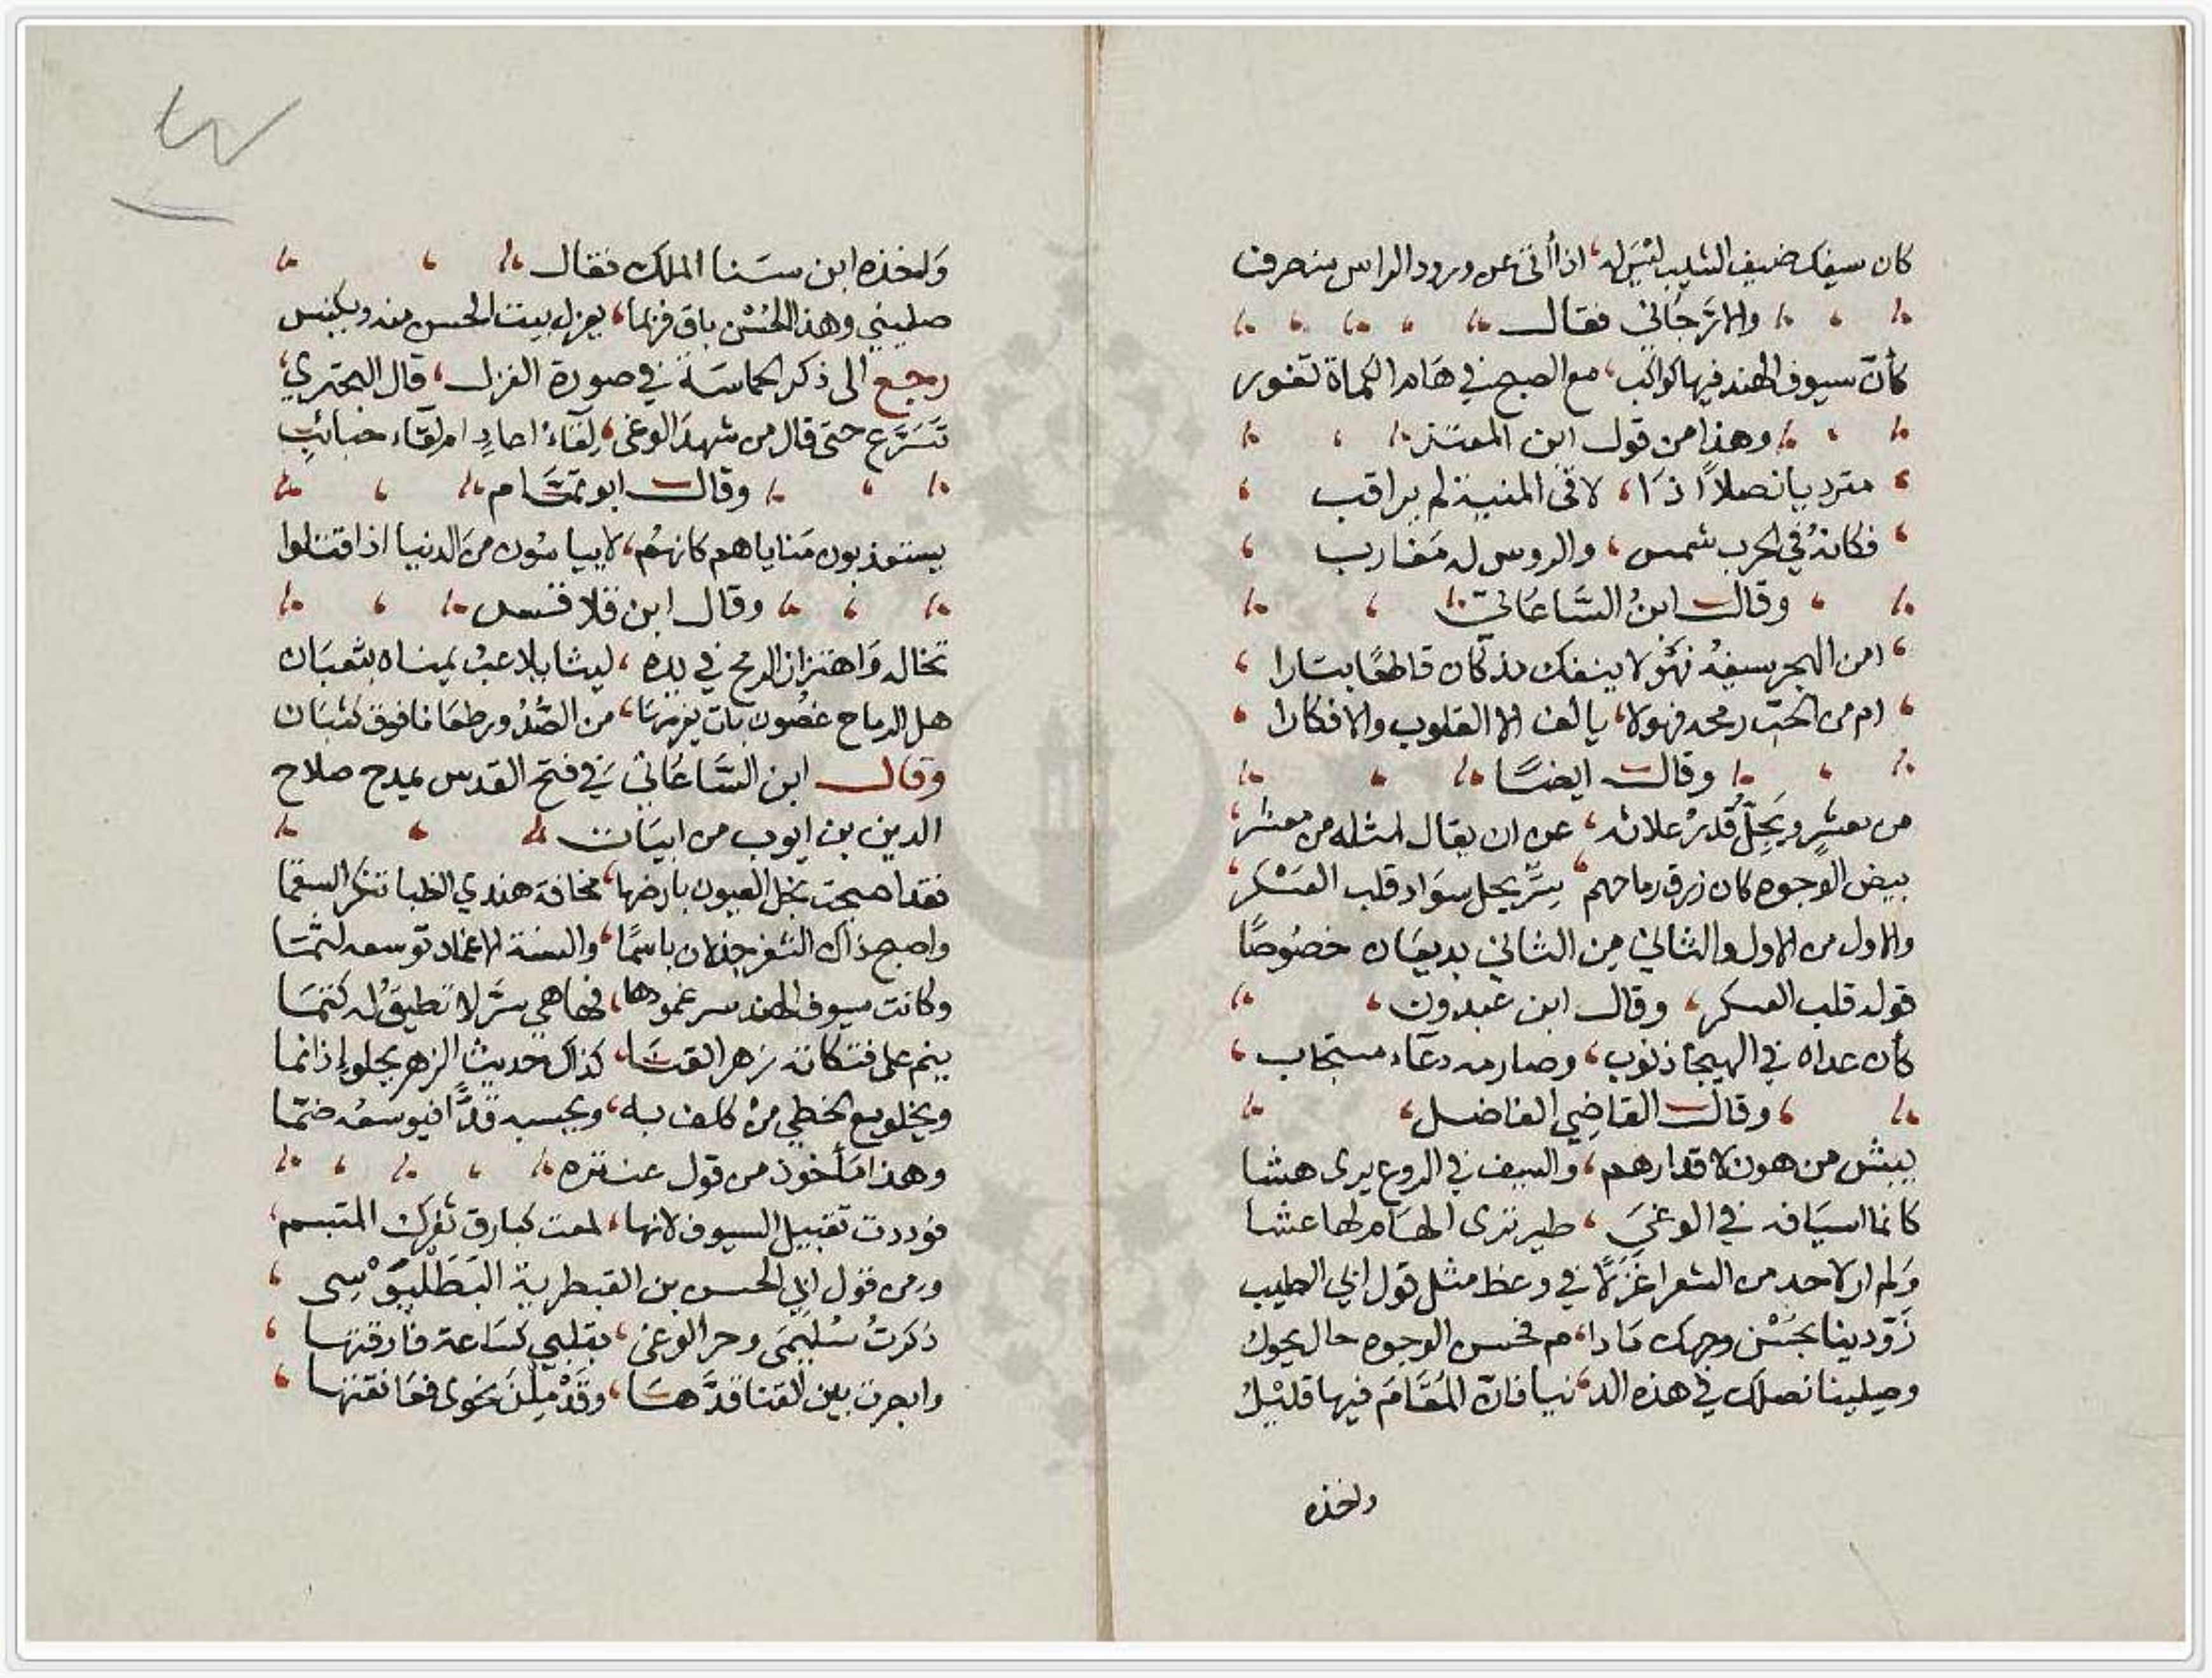 كان سيفك ضيف الشيب ليس له، اذا أتى عن ورود الراس منصرف
والارَّجَاني فقال
كأنّ سيوف الهند فيها كواكب، مع الصبح في هَام الكماة تغور
وهذا من قول ابن المعتز
مترديا نصلاً اذَا، لاقى المنية لم يراقب
فكانهُ في الحرب شمس، والروس له مَغارب
وقال ابنُ السَّاعَاتي
امن الهجر سيفهُ فهَو لا ينفك مذ كان قاطعًا بتارا
ام من الحبّ رمحه فهو لا، يالف الا القلوب والافكارا
وقال ايضًا
من معشرٍ ويَجِلُّ قُدرُ علائه، عن ان يقال لمثله من معشر
بيض الوجوه كان زرق رماحهم، سِرٌّ يحل سوَاد قلب العَسْكر
والاول من الاول والثاني مِن الثاني بديعَان خصُوصًا
قوله قلب العسكر، وقال ابن عبدون
كأن عداه في الهيجا ذنوب، وصارمه دعَاء مستجاب
وقال القاضِي الفاضل
يبش من هون لاقدارهم، والسيف في الروع يرى هشا
كانما اسيَافه في الوغىَ، طير ترى الهَام لها عشا
وَلم ار لاحد من الشعرا غَزَلًا في وعظ مثل قول ابي الطيب
زَوّدينا بحُسْن وجهك مَا دا، م فحسن الوجوه حال يحول
وصيلينا نصلك في هذه الد، نيا فانّ المُقَامَ فيها قليْلُ
واخذه
وَاخذه ابن سَنا الملك فقال
صليني وهذا الحُسْن باق فربما، يعزل بيت الحسن منه ويكنس
رجع الى ذكر الحماسَة في صورة الغزل، قال البحتري
تَسَرَّع حتى قال من شهدَ الوغى، لِقَاءُ اعادٍ ام لِقَاء حبائبِ
وقال ابو تمَّام
يستعذبون مَناياهم كانهُم، لا ييا سُون من الدنيا اذا قتلوا
وقال ابن قلاقس
تخاله وَاهتزاز الرمح في يده، ليثا يلاعبُ يمناه بثعبَان
هل الرماح غصُون بات يغرزهَا، من الصُّدُور طعَانا فوق كثبَان
وقال ابن السَّاعَاتي في فتح القدس يمدح صلاح
الدين بن ايوب من ابيَات
فقد اصبحت نجل العيون بارضها، مخافة هندي الظبا تنكر السقمَا
واصبح ذاك الثغر جذلان باسمًا، والسنة الاغماد توسعه لثمَا
وكانت سيوف الهند سر غمودها، فها هي سَرَّ لا تطيقُ له كتمَا
ينم على فتكاته زهر القنَا، كذاك حديث الزهر يحلو إذا نما
ويخلو مع الخطي مِنْ كلف به، ويحسبه قدًّا فيوسعهُ ضمّا
وهذا مَأخوذ من قول عنتره
فوددت تقبيل السيوف لانها، لمعت كبارق ثغرك المتبسم
ومن قول ابي الحسن بن القبطرية البَطَلْيَوْسى
ذكرتُ سُليمَى وحر الوغى، بقلبي كسَاعة فارقتها
وابصرت بين القنا قدَّهَا، وقَدْ مِلْنَ نحوى فعَانقتها